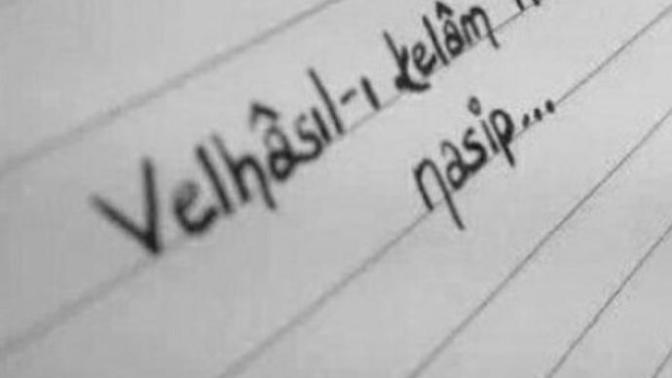 Velhâsıl-ı kelâm ..
nasip...